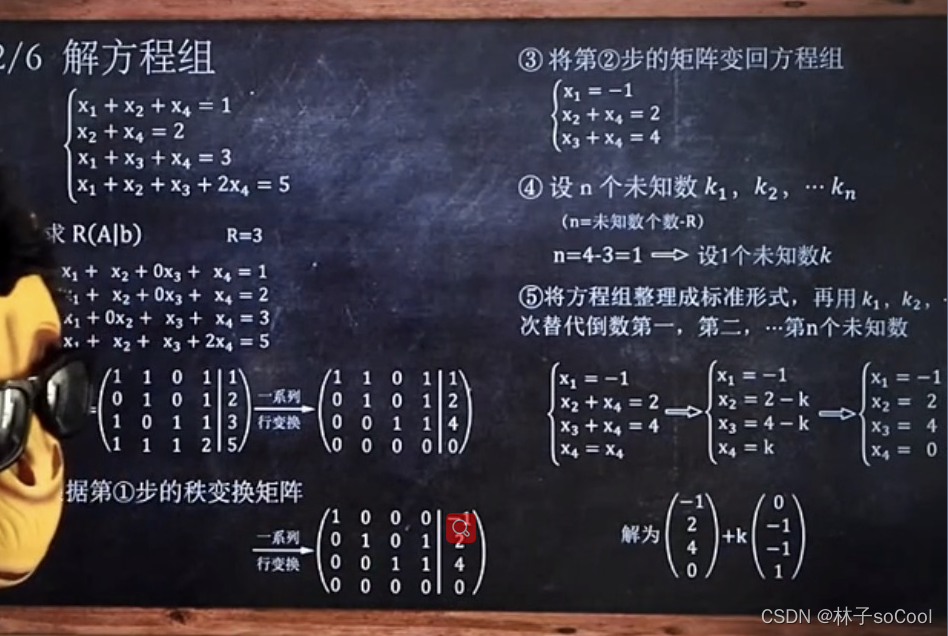 2/6 解方程组
x₁ + x₂ + x₄ = 1
x₂ + x₄ = 2
x₁ + x₃ + x₄ = 3
x₁ + x₂ + x₃ + 2x₄ = 5
求 R(A|b) R=3
x₁ + x₂ + 0x₃ + x₄ = 1
x₁ + x₂ + 0x₃ + x₄ = 2
x₁ + 0x₂ + x₃ + x₄ = 3
x₁ + x₂ + x₃ + 2x₄ = 5
= ( 1 1 0 1 | 1 ) 一系列 ( 1 1 0 1 | 1 )
0 1 0 1 | 2 行变换 0 1 0 1 | 2
1 0 1 1 | 3 0 0 1 1 | 4
1 1 1 2 | 5 0 0 0 0 | 0
据第①步的秩变换矩阵
一系列
行变换
1 0 0 0 | −1
0 1 0 1 | 2
0 0 1 1 | 4
0 0 0 0 | 0
③ 将第②步的矩阵变回方程组
x₁ = −1
x₂ + x₄ = 2
x₃ + x₄ = 4
④ 设 n 个未知数 k₁, k₂, ⋯ kₙ
(n=未知数个数-R)
n=4-3=1 ⟹ 设1个未知数k
⑤将方程组整理成标准形式,再用 k₁, k₂,
次替代倒数第一,第二,⋯第n个未知数
x₁ = −1 x₁ = −1 x₁ = −1
x₂ + x₄ = 2 ⇒ x₂ = 2 − k ⇒ x₂ = 2
x₃ + x₄ = 4 x₃ = 4 − k x₃ = 4
x₄ = x₄ x₄ = k x₄ = 0
解为 ( −1 2 4 0 ) +k ( 0 −1 −1 1 )
CSDN @林子soCool